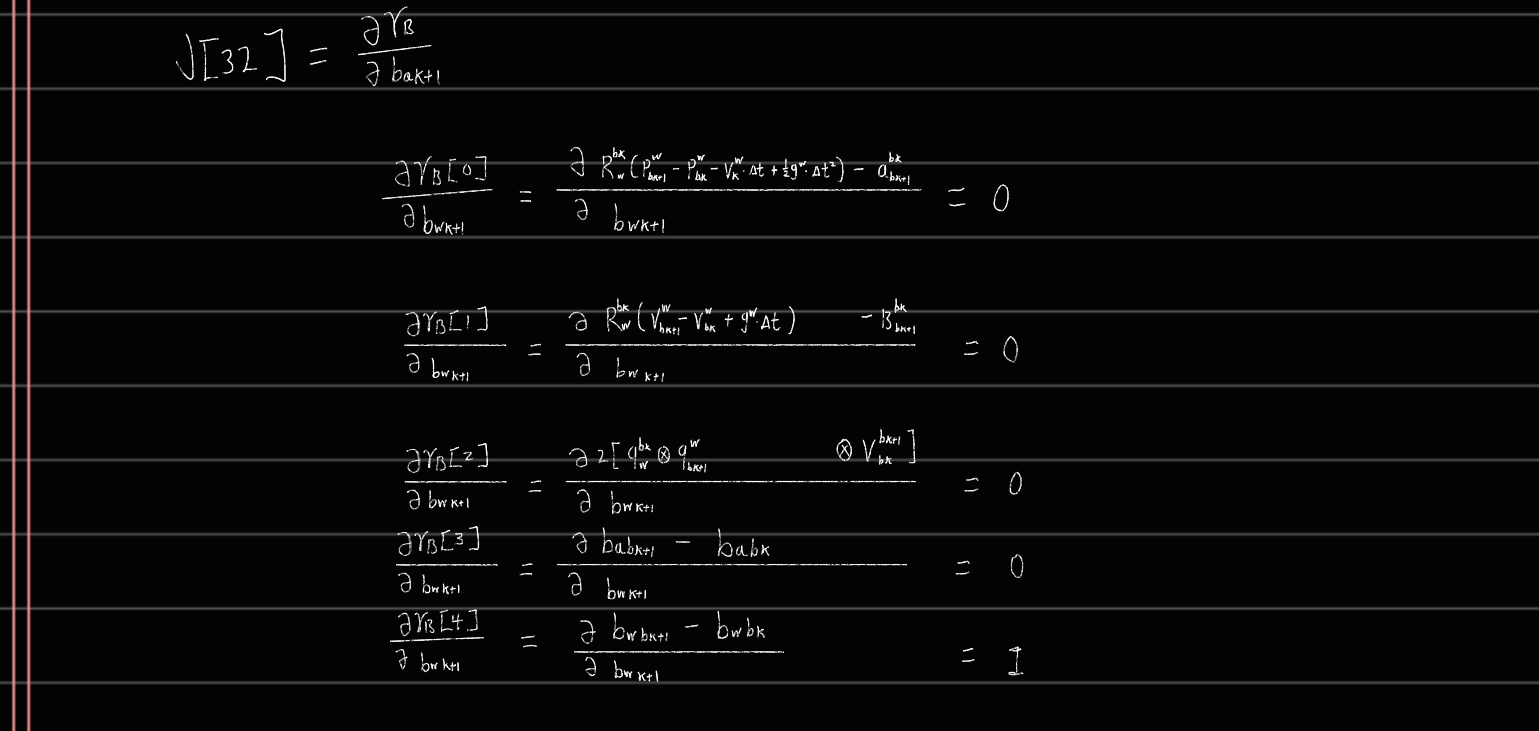 J[32] = ∂γB / ∂bak+1
∂γB[0] / ∂bwk+1 = ∂ R_w^bk (P_bk+1^w - P_bk^w - V_k^w · Δt + ½g^w · Δt²) - a_bk+1^bk / ∂ bwk+1 = 0
∂γB[1] / ∂bwk+1 = ∂ R_w^bk (V_bk+1^w - V_bk^w + g^w · Δt) - B_bk+1^bk / ∂ bwk+1 = 0
∂γB[2] / ∂bwk+1 = ∂ 2[q_w^bk ⊗ q_bk+1^w ⊗ V_bk^bk+1] / ∂ bwk+1 = 0
∂γB[3] / ∂bwk+1 = ∂ babk+1 - babk / ∂ bwk+1 = 0
∂γB[4] / ∂bwk+1 = ∂ bwbk+1 - bwbk / ∂ bwk+1 = I